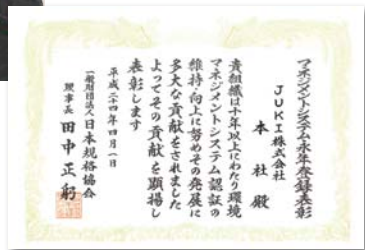 マネジメントシステム永年登録表彰
JUKI株式会社
本社殿
貴組織は十年以上にわたり環境
マネジメントシステム認証の
維持・向上に努めその発展に
多大な貢献をされました
よってその貢献を顕揚し
表彰します
平成二十四年四月一日
一般財団法人日本規格協会
理事長 田中正躬